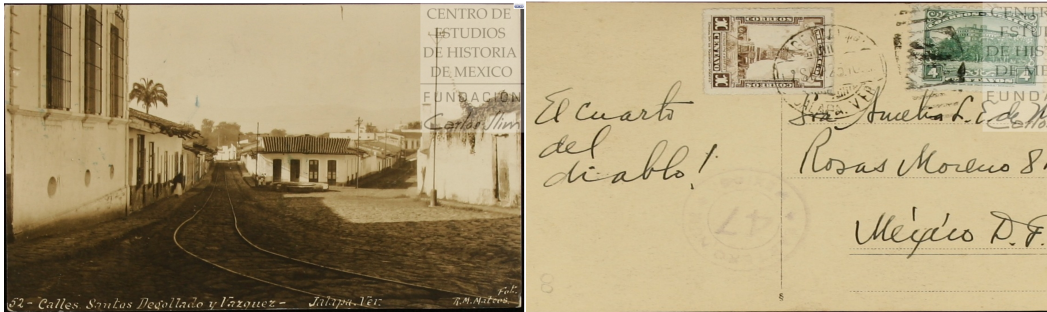 CENTRO DE
ESTUDIOS
DE HISTORIA
DE MEXICO
FUNDACIÓN
Carlos Slim
52- Calles. Santos Degollado y Vazquez - Jalapa. Ver.
Fot.
R.M. Mateos.
CORREOS
CENTAVO
4
El cuarto
del
diablo!
Sra. Amelia
Rosas Moreno 8
México D.F.
47
8